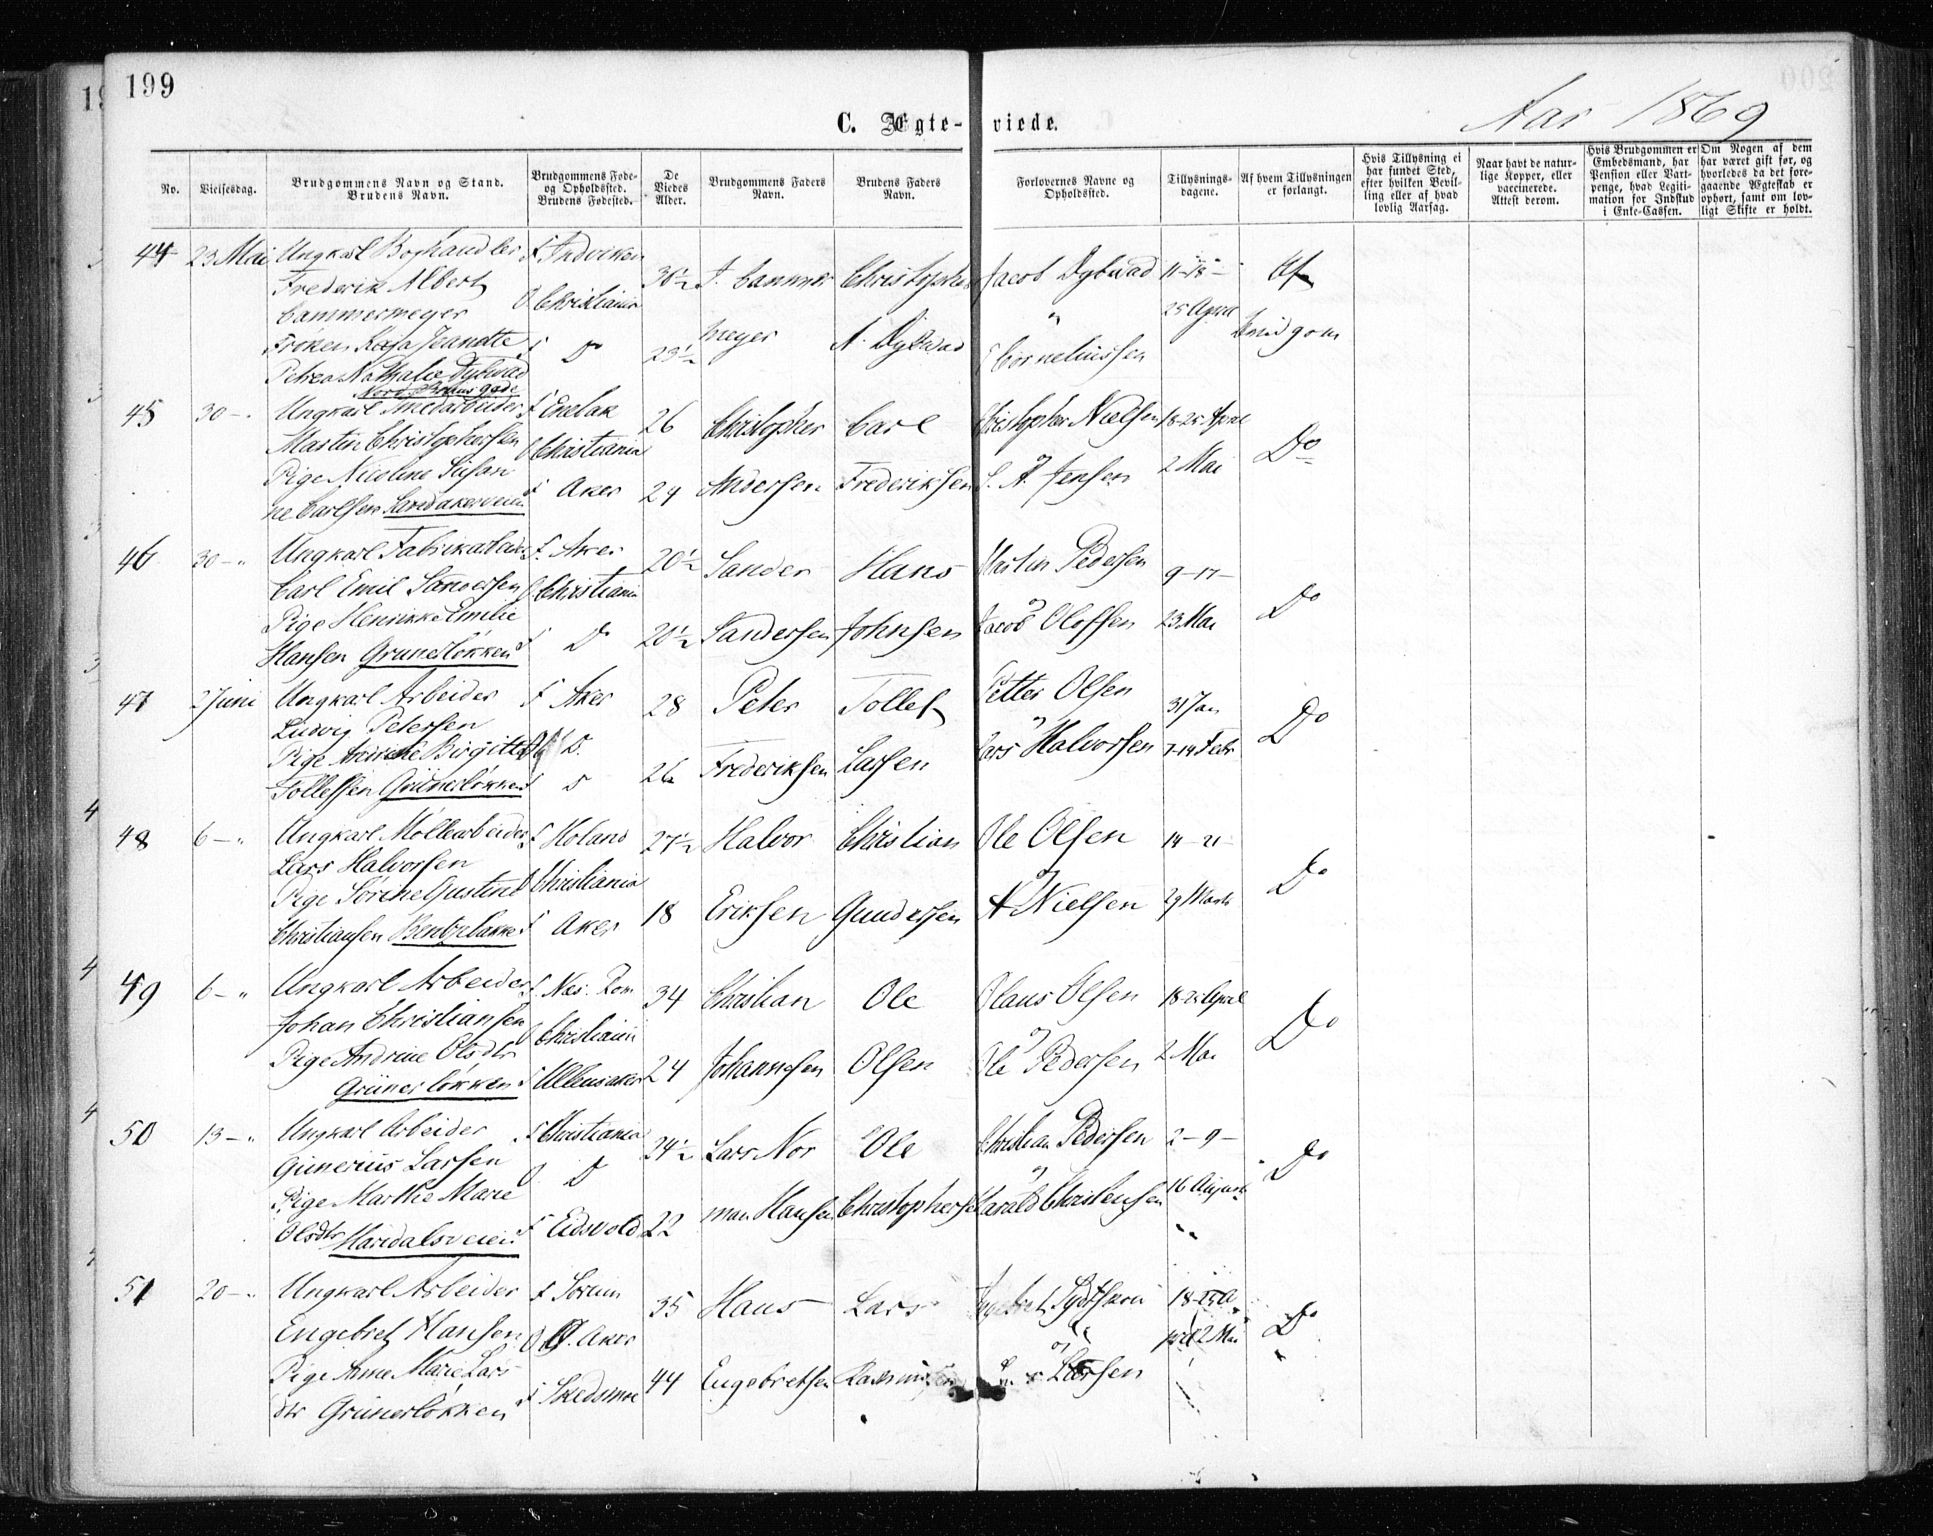 199
Aar 1869
C. Ægte-viede.
No.
Vielsesdag.
Brudgommens Navn og Stand.
Brudens Navn.
Brudgommens Føde-
og Opholdssted.
Brudens Fødested.
De
Viedes
Alder.
Brudgommens Faders
Navn.
Brudens Faders
Navn.
Forlovernes Navne og
Opholdssted.
Tillysnings-
dagene.
Af hvem Tillysningen
er forlangt.
Hvis Tillysning ei
har fundet Sted,
efter hvilken Bevil-
ling eller af hvad
lovlig Aarsag.
Naar havt de natur-
lige Kopper, eller
vaccinerede.
Attest derom.
Hvis Brudgommen er
Embedsmand, har
Pension eller Vart-
penge, hvad Legiti-
mation for Indskud
i Enke-Cassen.
Om Nogen af dem
har været gift før, og
hvorledes da det fore-
gaaende Ægteskab er
ophørt, samt om lov-
ligt Skifte er holdt.
44 23 Mai Ungkarl Boghandler F Indviken 30½ J. Cammer Christopher Jacob Dybwad 11-18- Af
Frederik Albert
Cammermeyer O Christiania 25 April Brudgom
Frøken Rosa Jeanette F Do 23½ meyer A. Dybwad Corneliussen
Petrea Nathalie Dybwad
gade
45 30 - Ungkarl F Enebak 26 Christopher Carl Christopher Nielsen 18-25 April
Martin Christophersen O Christiania Do
Pige Nicoline Susan F Aker 29 Andersen Frederiksen S. A. Jensen 2 Mai
ne Carlsen
46 30 - Ungkarl Fabrikarbeider F. Aker 20½ Sander Hans Martin Pedersen 9-17-
Carl Emil Sandersen O Christiania Do
Pige Henrikke Emilie F Do 20½ Sandersen Johnsen Jacob Oloffsen 23 Mai
Hansen Grünerløkken
47 2 Juni Ungkarl Arbeider F Aker 28 Peter Tollef Petter Olsen 31 Jan
Ludvig Petersen O Do Do
Pige Birgitte Frederiksen Lassen Lars Halvorsen 7-14 Febr
Tollefsen Grünerløkken 26
48 6 - Ungkarl Møllearbeider F Høland 27½ Halvor Christian Ole Olsen 14-21-
Lars Halvorsen O Christiania Do
Pige Sørine Gustine F Aker 18 Eriksen Gundersen A Nielsen 29 Marts
Christiansen
49 6 - Ungkarl Arbeider F Næs. Rom 34 Christian Ole Olaus Olsen 18-25 April
Johan Christiansen O Christiania Do
Pige Andrine Olsdtr F Ullensaker 24 Johannesen Olsen Ole Pedersen 2 Mai
Grünerløkken
50 13 - Ungkarl Arbeider F Christiania 24½ Lars Nor Ole Christian Pedersen 2-9-
Gunerius Larsen O Do Do
Pige Marthe Marie F Eidsvold 22 man Hansen Christophersen Harald Christensen 16 August
Olsdtr Maridalsveien
51 20 - Ungkarl Arbeider F Sørum 35 Hans Lars 18-25 A
Engebret Hansen O Aker pril 2 Mai Do
Pige Anne Marie Lars F Skedsmoe 44 Engebretsen Larsen
dtr Grünerløkken